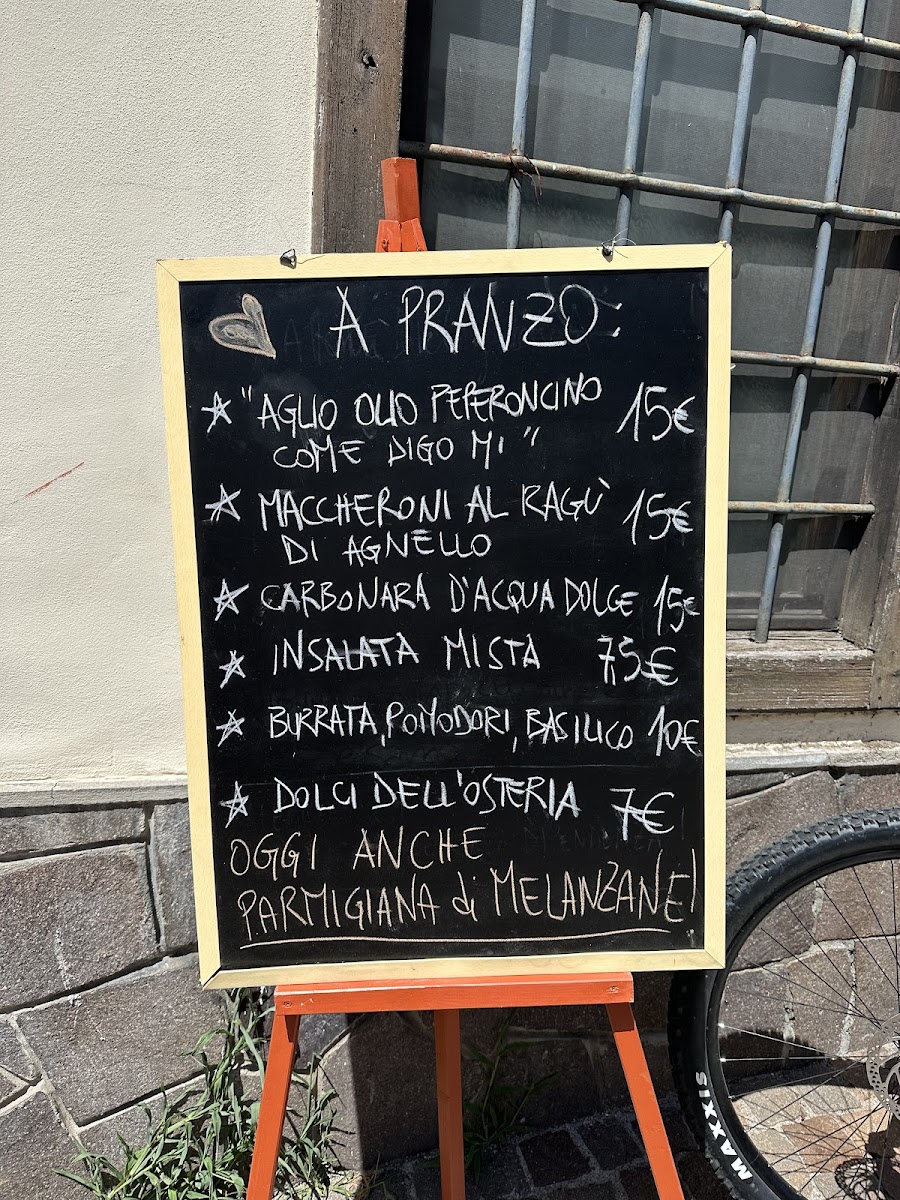 A PRANZO:
"AGLIO OLIO PEPERONCINO 15€
COME DIGO MI"
MACCHERONI AL RAGÙ 15€
DI AGNELLO
CARBONARA D'ACQUA DOLCE 15€
INSALATA MISTA 7,5€
BURRATA, POMODORI, BASILICO 10€
DOLCI DELL'OSTERIA 7€
OGGI ANCHE
PARMIGIANA di MELANZANE!
MAXXIS